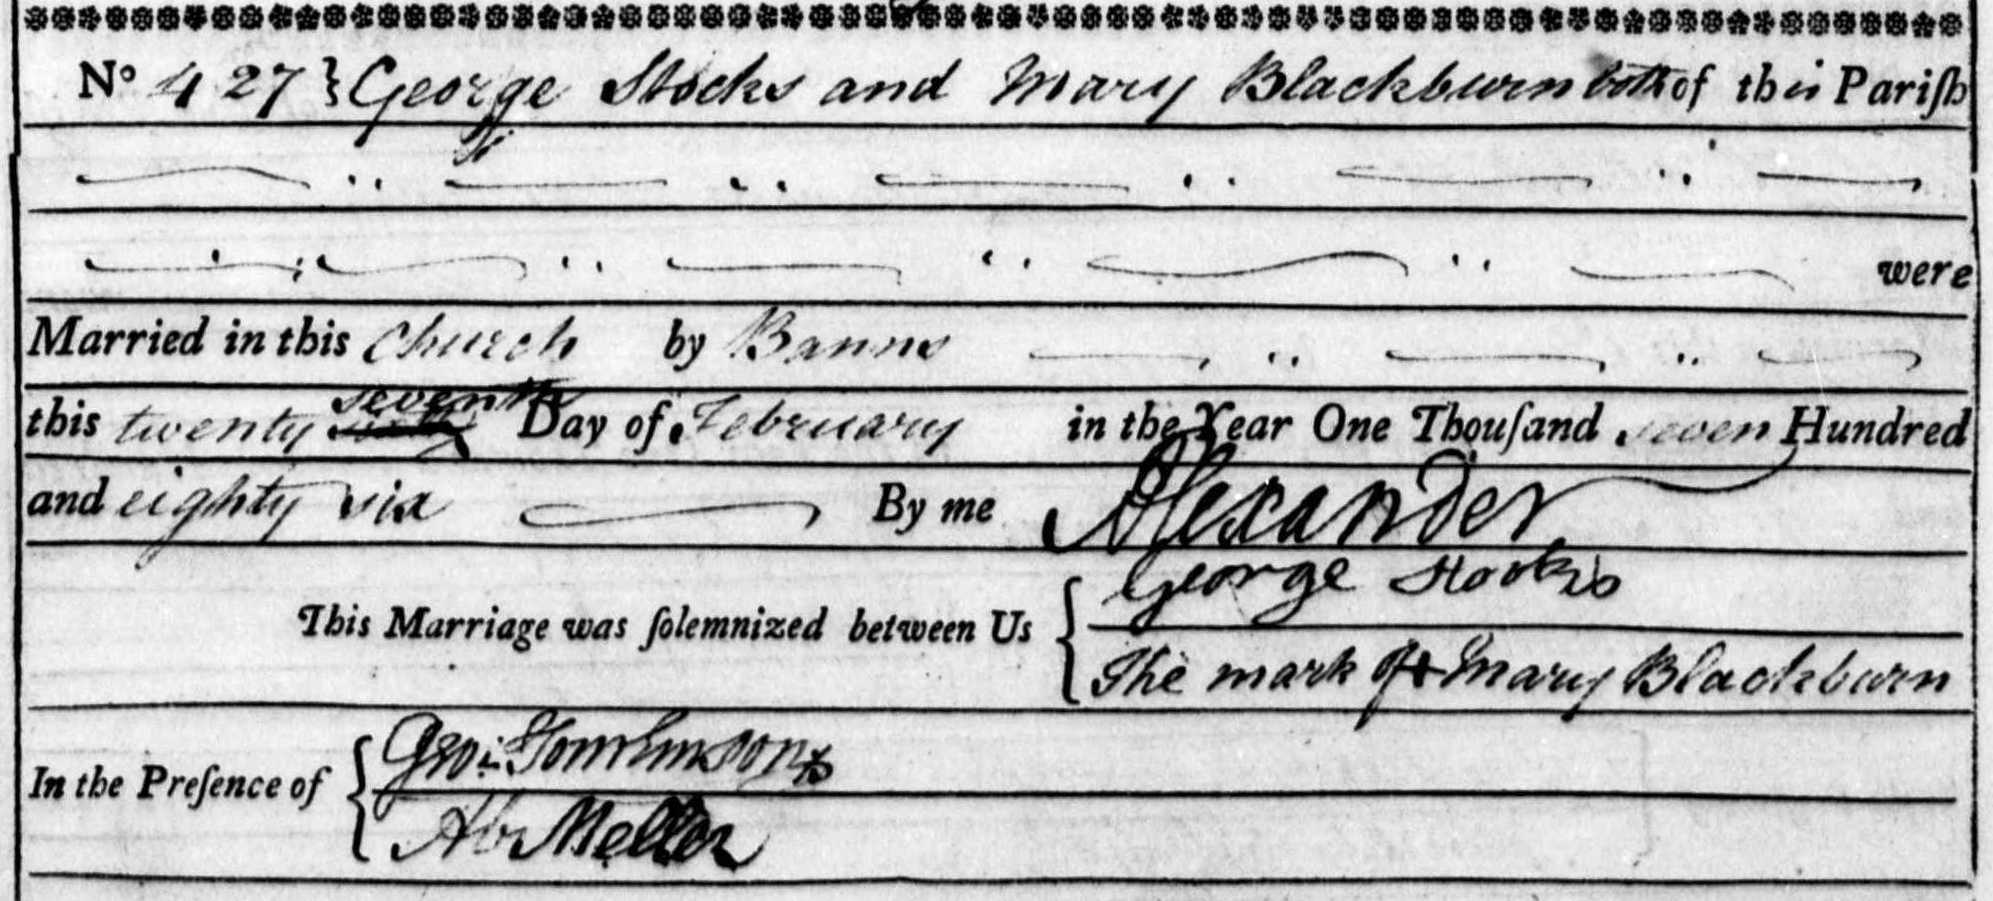 No 427 } George Stocks and Mary Blackburn both of this Pariſh
were
Married in this Church by Banns
this twenty seventh Day of February in the Year One Thouſand seven Hundred
and eighty six By me Alexander
This Marriage was ſolemnized between Us { George Stocks
The mark of + Mary Blackburn
In the Preſence of { Geo: Tomlinson
Abr Mellor